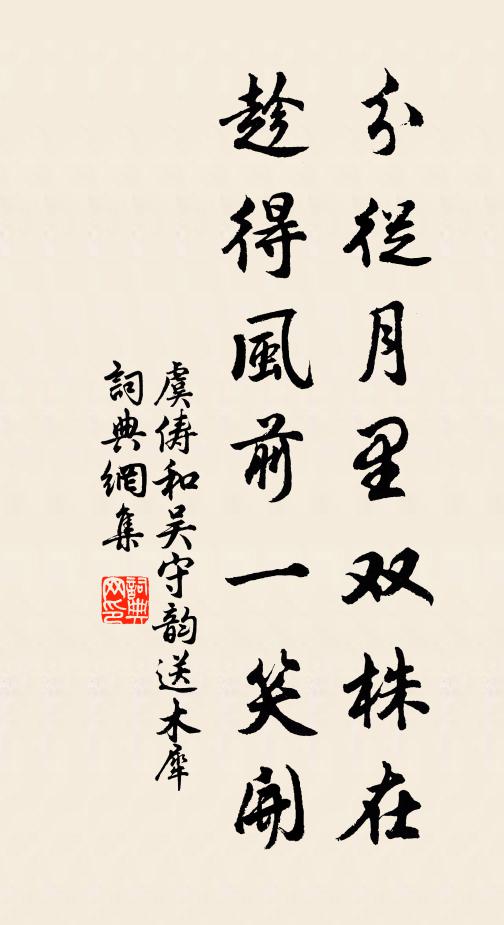 分從月里双株在
趁得風前一笑開
虞儔和吴守韵送木犀
詞典網集
詞典網印